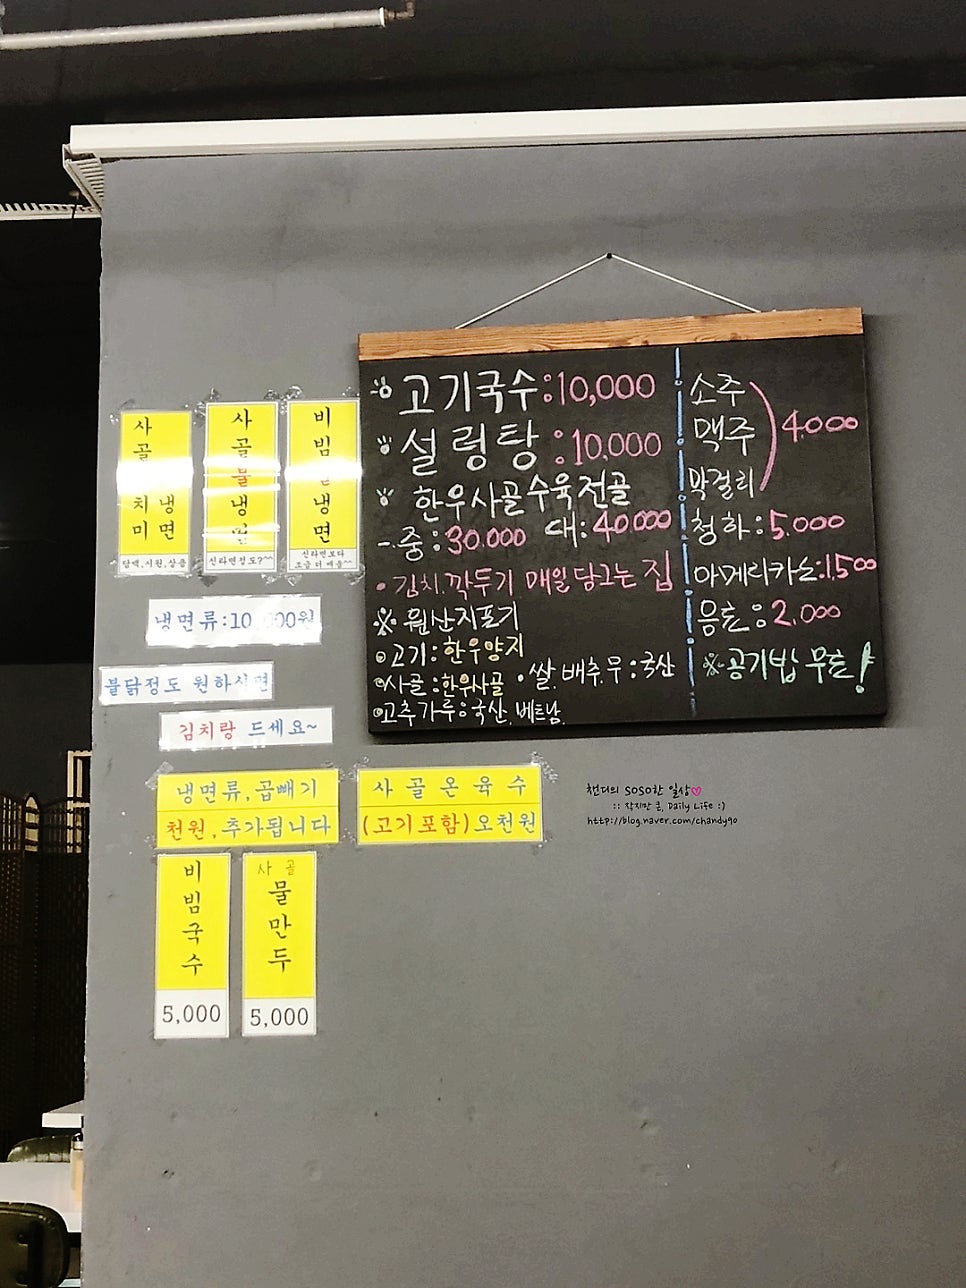 고기국수:10,000
설렁탕:10,000
한우사골수육전골
-.중:30.000 대:40.000
•김치.깍두기 매일 담그는 집
※ 원산지표기
고기:한우양지
사골:한우사골 •쌀.배추.무:국산
고추가루:국산.베트남.
소주
맥주
막걸리
4.000
청하:5.000
아메리카노:1,500
음료:2.000
※공기밥 무료!
사골
치미
냉면
담백,시원,살음
사골불냉면
신라면정도?^^
비빔 냉면
신라면보다
조금 더 매움^^
냉면류:10,000원
불닭정도 원하시면
김치랑 드세요~
냉면류,곱빼기
천원,추가됩니다
사골온육수
(고기포함)오천원
비빔국수
5,000
사골
물만두
5,000
챈디의 SOSO한 일상♡
:: 작지만 큰, Daily Life :)
http://blog.naver.com/chandy90